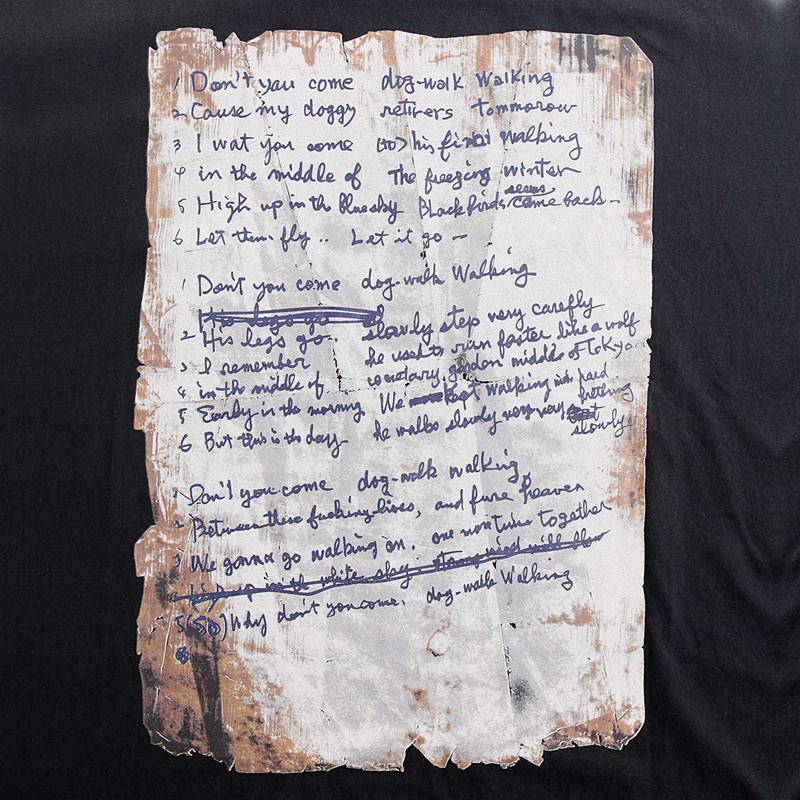 1 Don't you come dog-walk Walking
2 Cause my doggy retirers tommorow
3 I wat you come (to) his final walking
4 in the middle of The freezing winter
5 High up in the Blue sky Black birds seems come back -
6 Let them fly .. Let it go —
1 Don't you come dog-walk Walking
His legs go
2 His legs go slowly step very carefly
3 I remember he used to run faster like a wolf
4 in the middle of cemetary, garden middle of Tokyo
5 Early in the morning We kept walking with hard brething
6 But this is the day he walks slowly very very slowly
1 Don't you come dog-walk walking
2 Between these fucking lives, and fure heaven
3 We gonna go walking on. one more time together
4 high up in the white sky strong wind will blow
5 (So) Why don't you come, dog-walk Walking